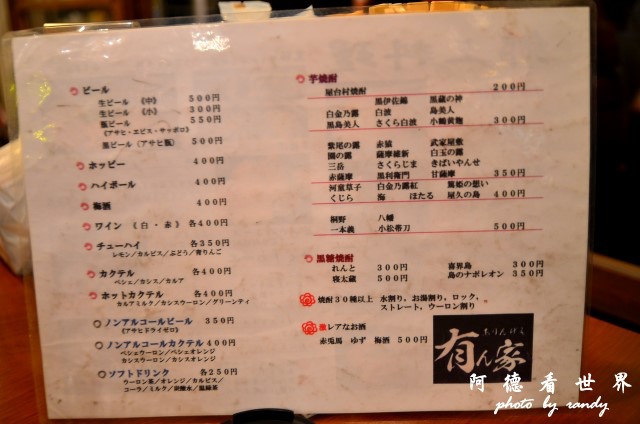 ビール
生ビール 《中》 500円
生ビール 《小》 300円
瓶ビール 550円
《アサヒ・エビス・サッポロ》
黒ビール《アサヒ瓶》 500円
ホッピー 400円
ハイボール 400円
梅酒 400円
ワイン 《白・赤》 各400円
チューハイ 各350円
レモン/カルピス/ぶどう/青りんご
カクテル 各400円
ペシェ/カシス/カルア
ホットカクテル 各400円
カルアミルク/カシスウーロン/グリーンティ
ノンアルコールビール 350円
《アサヒドライゼロ》
ノンアルコールカクテル 400円
ペシェウーロン/ペシェオレンジ
カシスウーロン/カシスオレンジ
ソフトドリンク 各250円
ウーロン茶/オレンジ/カルピス/
コーラ/ミルク/炭酸水/温緑茶
芋焼酎
屋台村焼酎 200円
黒伊佐錦 黒蔵の神
白金乃露 白波 島美人
黒島美人 さくら白波 小鶴黄麹 300円
紫尾の露 赤猿 武家屋敷
園の露 薩摩維新 白玉の露
三岳 さくらじま きばいやんせ
赤薩摩 黒利衛門 甘薩摩 350円
河童草子 白金乃露紅 篤姫の想い
くじら 海 ほたる 屋久の島 400円
桐野 八幡
一本義 小松帯刀 500円
黒糖焼酎
れんと 300円 喜界島 300円
寝太蔵 500円 島のナポレオン 350円
焼酎30種以上 水割り、お湯割り、ロック、
ストレート、ウーロン割り
レアなお酒
赤兎馬 ゆず 梅酒 500円
有ん家
阿德看世界
photo by randy